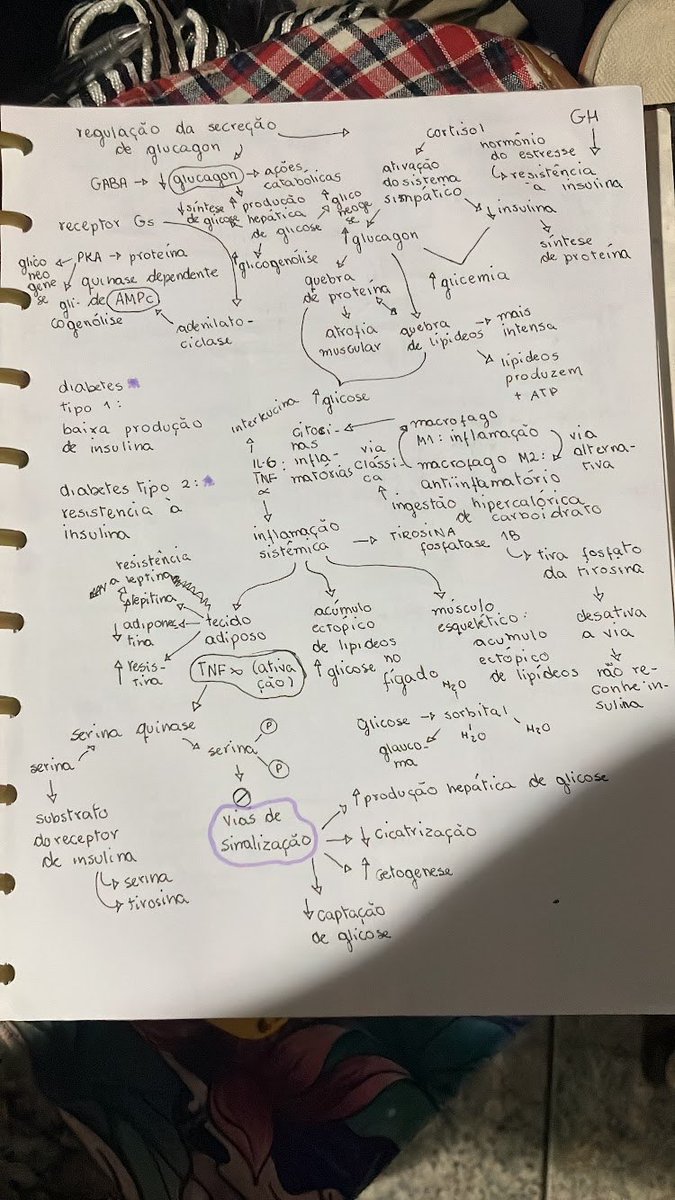 regulação da secreção
de glucagon
GABA → ↓ glucagon → ações
catabólicas
receptor Gs
↓ síntese
de glicose
↑ produção
hepática
de glicose
↑ glico
neoge
se
↑ glicogenólise
glico
neo
gene
se
PKA → proteína
quinase dependente
de AMPc
gli-
cogenólise
adenilato-
ciclase
cortisol
ativação
do sistema
simpático
hormônio
do estresse
GH
resistência
à insulina
↓ insulina
síntese
de proteína
↑ glucagon
↑ glicemia
quebra
de proteína
atrofia
muscular
quebra
de lipídeos
→ mais
intensa
lípideos
produzem
+ ATP
↑ glicose
diabetes
tipo 1:
baixa produção
de insulina
diabetes tipo 2:
resistencia à
insulina
interkucina
IL-6: infla-
TNF
α
citosi-
nas
matórias
via
clássi-
ca
macrofago
M1: inflamação
macrofago M2:
antiinflamatório
via
alterna-
tiva
↑ ingestão hipercalórica
de carboidrato
inflamação
sistêmica
→ TIROSINA
fosfatase 1B
↳ tira fosfato
da tirosina
desativa
a via
não re-
conhe in-
sulina
resistência
a leptina
lepitina
↓ adipones-
tina
↑ resis-
tina
tecido
adiposo
TNF α (ativa
ção)
acúmulo
ectópico
de lipídeos
↑ glicose no
fígado
músculo
esquelético:
acumulo
ectópico
de lípídeos
H₂O
Glicose → sorbital
H₂O
H₂O
glauco-
ma
serina quinase
serina
serina
P
P
substrato
do receptor
de insulina
↳ serina
↳ tirosina
vias de
sinalização
↑ produção hepática de glicose
↓ cicatrização
↑ cetogenese
↓ captação
de glicose